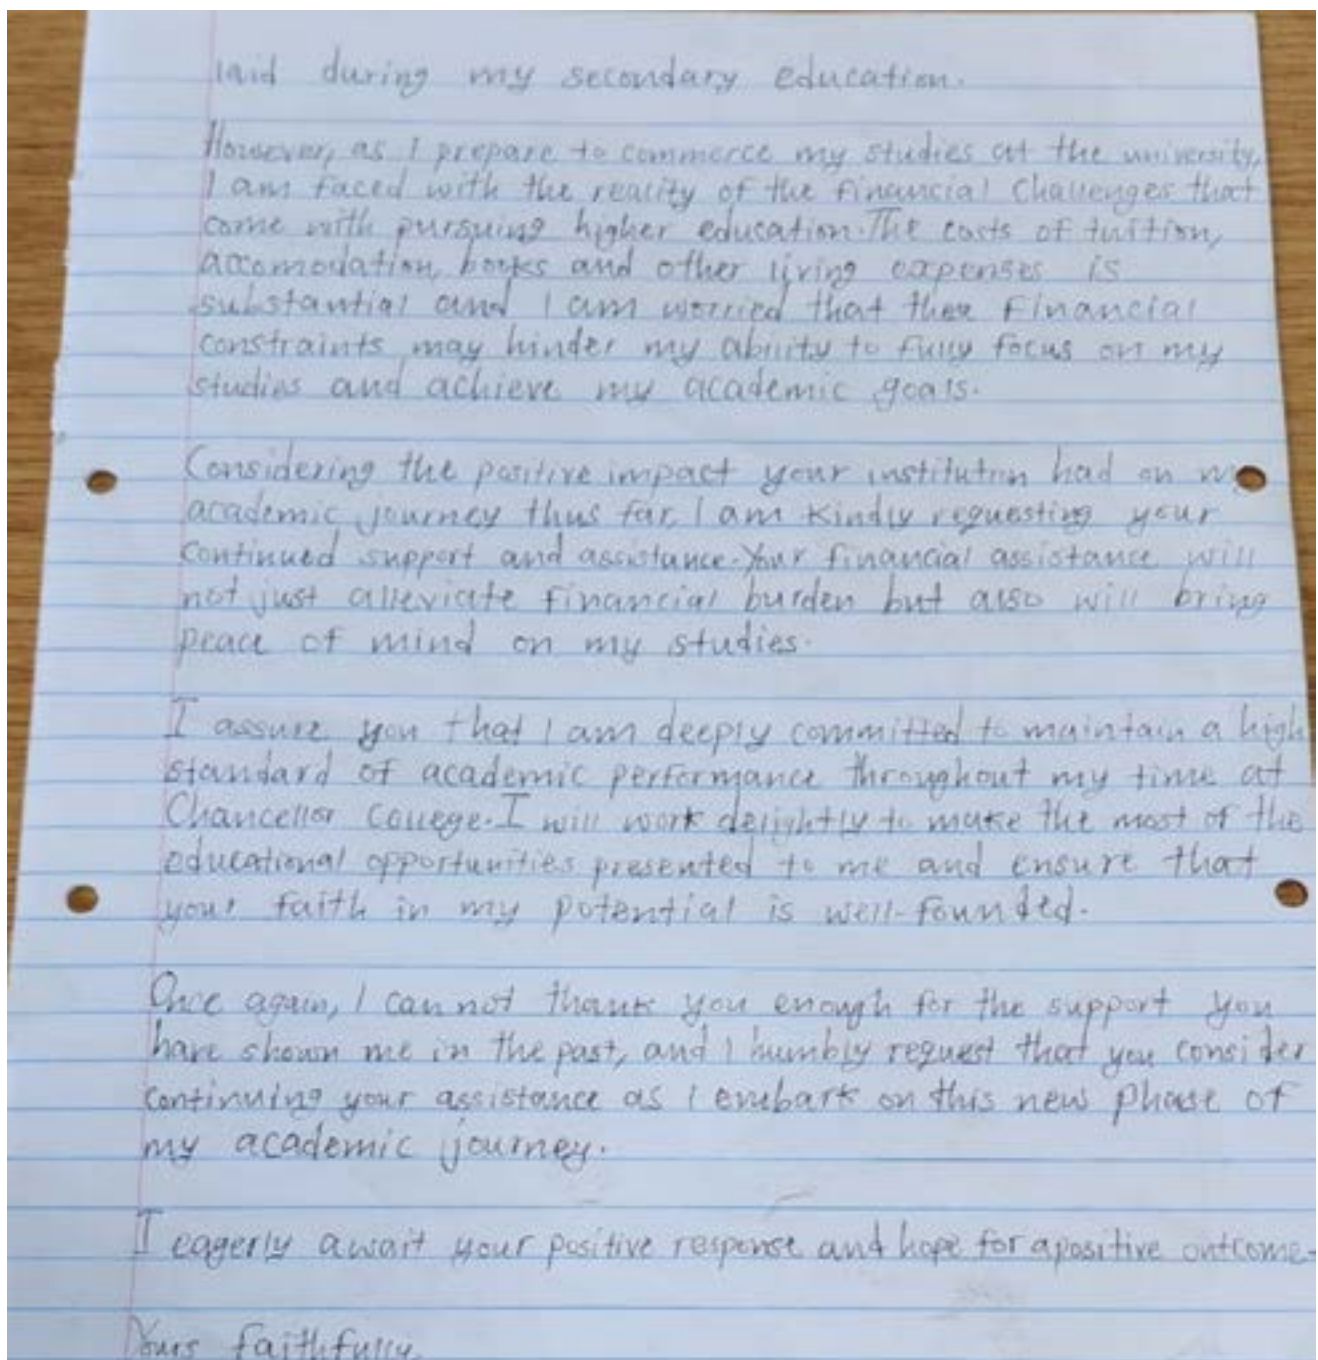 laid during my secondary education.
However, as I prepare to commerce my studies at the university,
I am faced with the reality of the financial challenges that
come with pursuing higher education. The costs of tuition,
accomodation, books and other living expenses is
substantial and I am worried that thee financial
constraints may hinder my ability to fully focus on my
studies and achieve my academic goals.
Considering the positive impact your institution had on
academic journey thus far, I am kindly requesting your
continued support and assistance. Your financial assistance will
not just alleviate financial burden but also will bring
peace of mind on my studies.
I assure you that I am deeply committed to maintain a high
standard of academic performance throughout my time at
Chancellor College. I will work delightly to make the most of the
educational opportunities presented to me and ensure that
your faith in my potential is well-founded.
Once again, I can not thank you enough for the support you
have shown me in the past, and I humbly request that you consider
continuing your assistance as I embark on this new phase of
my academic journey.
I eagerly await your positive response and hope for a positive outcome.
Yours faithfully,